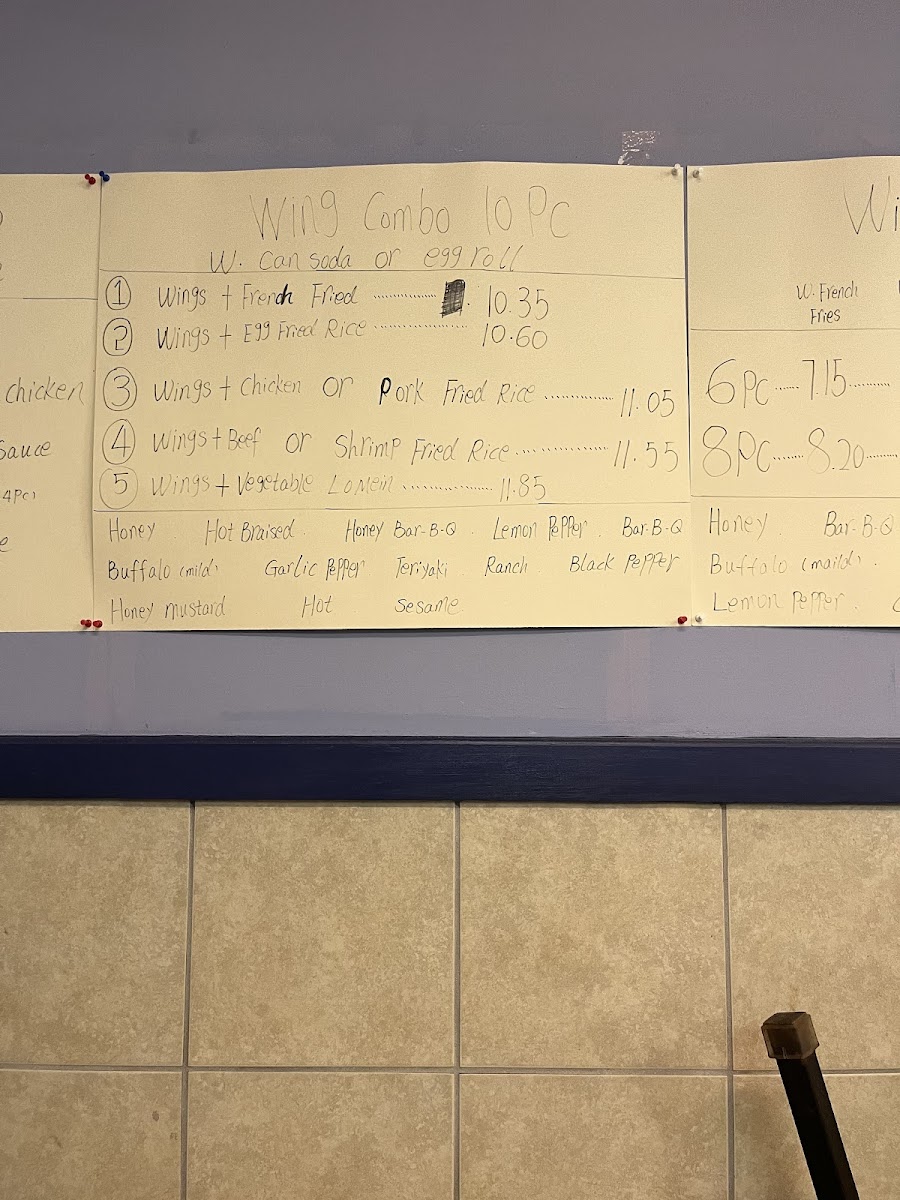 chicken
Sauce
4Pc)
Wing Combo 10 Pc
W. Can Soda or egg roll
① Wings + French Fried ............ 10.35
② Wings + Egg Fried Rice ............ 10.60
③ Wings + Chicken or Pork Fried Rice ............ 11.05
④ Wings + Beef or Shrimp Fried Rice ............ 11.55
⑤ Wings + Vegetable Lo Mein ............ 11.85
Honey Hot Braised Honey Bar-B-Q Lemon Pepper Bar-B-Q
Buffalo (mild) Garlic Pepper Teriyaki Ranch Black Pepper
Honey mustard Hot Sesame
Wi
W. French
Fries
6 Pc ..... 7.15 ........
8 PC ...... 8.20 ......
Honey Bar-B-Q
Buffalo (maild)
Lemon Pepper